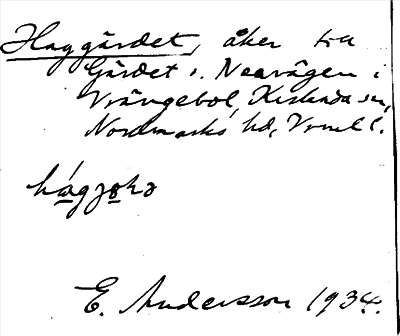 Haggärdet, åker till
Gärdet s. Nearvägen i
Vrängebol, Köla sn,
Nordmarks hd, Vrml l.
hágjəḷə
E. Andersson 1934.